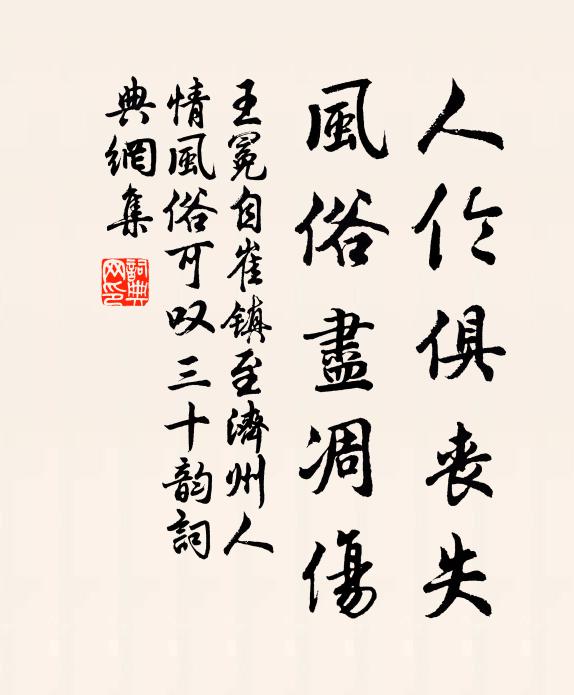 人伦俱丧失
風俗盡凋傷
王冕自崔鎮至濟州人
情風俗可叹三十韵詞
典網集
詞典网印